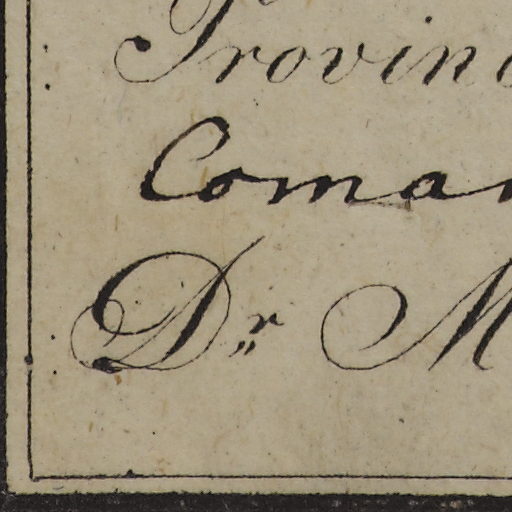 Provin
Coman
Dr M